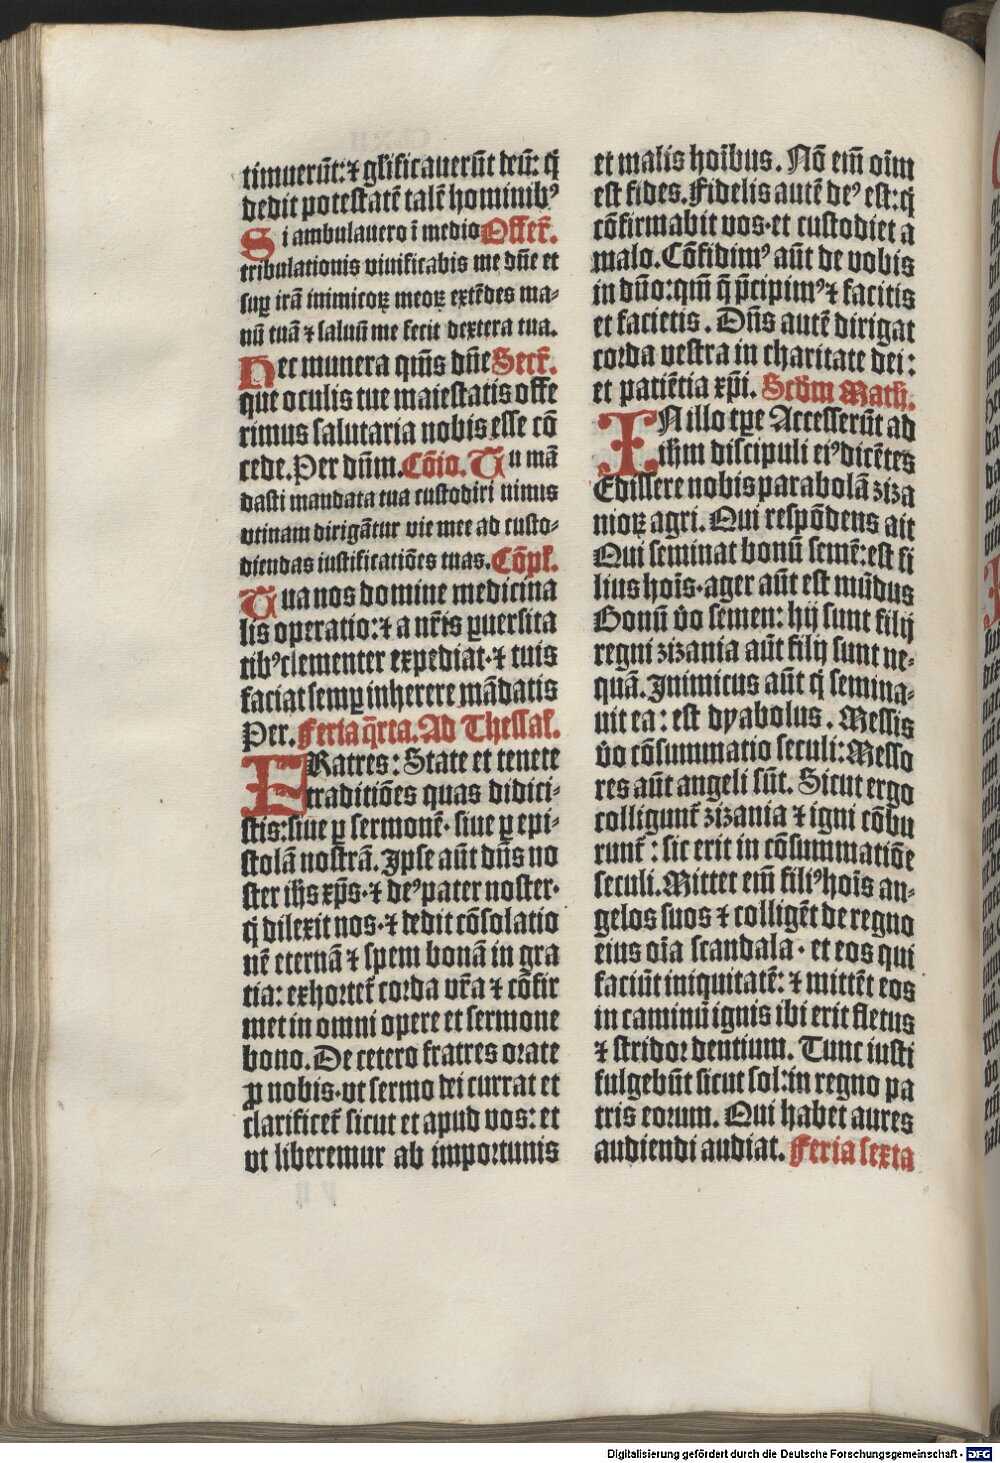 timuerūt: ⁊ gl'ificauerūt deū: q̄
dedit potestatē talē hominibꝰ
Si ambulauero ī medio Offer̄.
tribulationis viuificabis me dn̄e et
suꝑ irā inimicoꝝ meoꝝ extēdes ma-
nū tuā ⁊ saluū me fecit dextera tua.
Hec munera qm̄s dn̄e Secr̄.
que oculis tue maiestatis offe
rimus salutaria nobis esse cō
cede. Per dn̄m. Cōio. Tu mā
dasti mandata tua custodiri nimis
vtinam dirigātur vie mee ad custo-
diendas iustificatiōes tuas. Cōpl'.
Tua nos domine medicina
lis operatio: ⁊ a nr̄is ꝑuersita
tibꝰ clementer expediat· ⁊ tuis
faciat semꝑ inherere mādatis
Per. Feria q̄rta. Ad Thessal'.
FRatres: State et tenete
traditiōes quas didici-
stis: siue ꝑ sermonē· siue ꝑ epi-
stolā nostrā. Ipse aūt dn̄s no
ster ih̄s xp̄s· ⁊ deꝰ pater noster·
q̄ dilexit nos· ⁊ dedit cōsolatio
nē eternā ⁊ spem bonā in gra
tia: exhortet̄ corda vr̄a ⁊ cōfir
met in omni opere et sermone
bono. De cetero fratres orate
ꝓ nobis· vt sermo dei currat et
clarificet̄ sicut et apud vos: et
vt liberemur ab importunis
et malis hoībus. Nō em̄ oīm
est fides. Fidelis autē deꝰ est: q̄
cōfirmabit vos· et custodiet a
malo. Cōfidimꝰ aūt de vobis
in dn̄o: qm̄ q̄ p̄cipimꝰ ⁊ facitis
et facietis. Dn̄s autē dirigat
corda vestra in charitate dei:
et patiētia xp̄i. Scd'm Math.
IN illo tꝑe Accesserūt ad
ih̄m discipuli eiꝰ dicētes
Edissere nobis parabolā ziza
nioꝝ agri. Qui respōdens ait
Qui seminat bonū semē: est fi
lius hoīs· ager aūt est mūdus
Bonū v̄o semen: hij sunt filij
regni zizania aūt filij sunt ne-
quā. Inimicus aūt q̄ semina-
uit ea: est dyabolus. Messis
v̄o cōsummatio seculi: Messo
res aūt angeli sūt. Sicut ergo
colligunt̄ zizania ⁊ igni cōbu
runt̄: sic erit in cōsummatiōe
seculi. Mittet em̄ filiꝰ hoīs an-
gelos suos ⁊ colligēt de regno
eius oīa scandala· et eos qui
faciūt iniquitatē: ⁊ mittēt eos
in caminū ignis ibi erit fletus
⁊ stridor dentium. Tunc iusti
fulgebūt sicut sol: in regno pa
tris eorum. Qui habet aures
audiendi audiat. Feria sexta
Digitalisierung gefördert durch die Deutsche Forschungsgemeinschaft - DFG